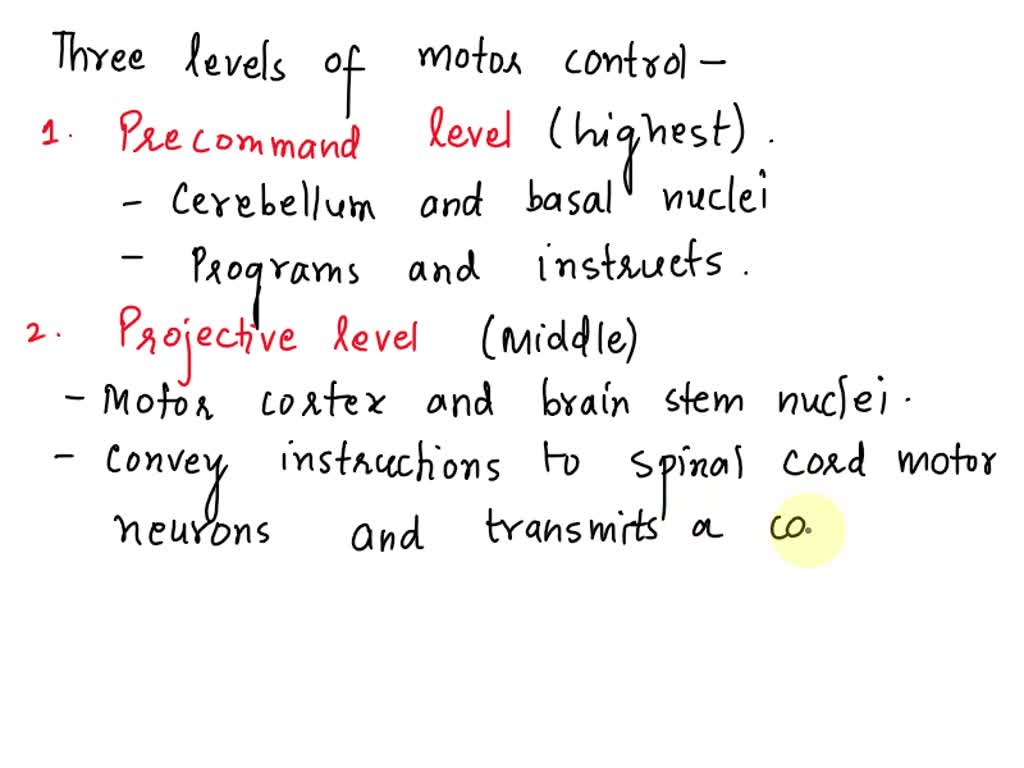 Three levels of motor control -
1. Precommand level (highest).
- Cerebellum and basal nuclei
- Programs and instructs.
2. Projective level (Middle)
- Motor cortex and brain stem nuclei.
- Convey instructions to spinal cord motor
neurons and transmits a co